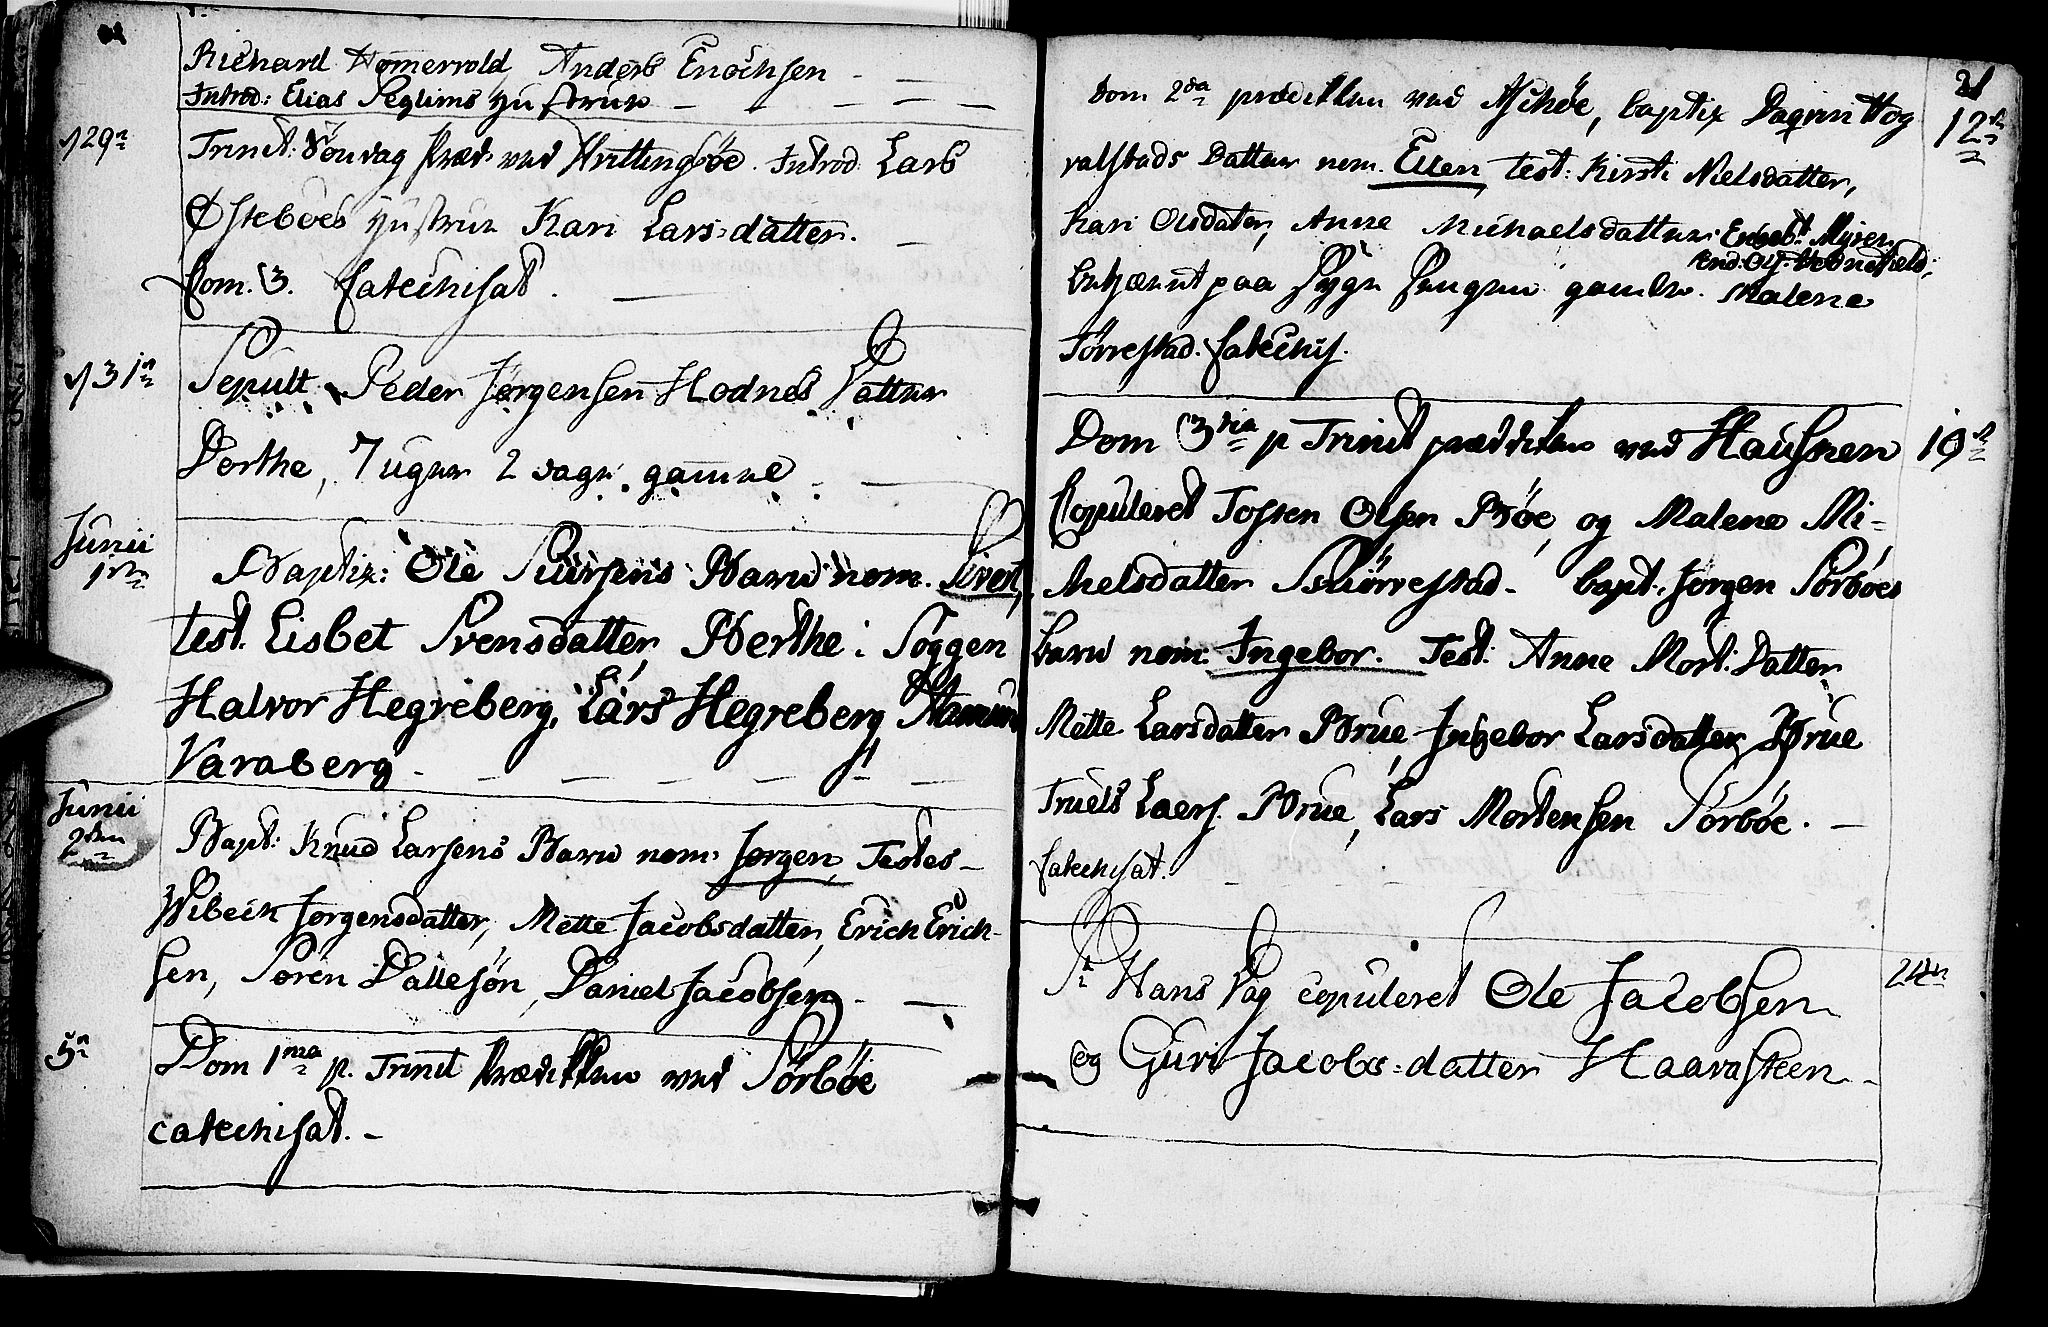 Richard Hømervold, Anders Enochsen - -
Introd: Elias Seglims Hustrue - - - - -
29n Trinit: Søndag Præd: ved Hvittingsöe. Introd. Lars
Østeböes Hustrue Kari Lars-datter. -
Com. 3. Catechisat. -
31n Sepult. Peder Jørgensen Hodnes Datter
Dorthe, 7 uger 2 dage gamel - -
Junii
1ste Baptiz: Ole Siursens Barn nom. Sivert,
test. Lisbet Svensdatter, Berthe: Soggen
Halvor Hegreberg, Lars Hegreberg,
Varaberg - - - - - -
Junii
2den Bapt: Knud Larsens Barn nom. Jørgen, Testes -
Wibech Jørgensdatter, Mette Jacobsdatter, Erich Erich-
sen, Søren Dallesøn, Daniel Jacobsen - -
5n Dom 1ma p. Trinit Prædikken ved Sörböe
catechisat. -
21
Dom 2da prædikken ved Aschöe, baptiz Dagvin Hog 12te
valstads Datter nom. Ellen, test: Kirsti Nielsdatter,
Kari Olsdater, Anne Michaelsdatter. Engeb: Myren,
And: Ols:
berettet paa Syge Sengen gamle. Malene
Törrestad. Catechis.
Dom 3tia p Trinit prædikken ved Hausken 19te
Copuleret Tosten Olsen Böe, og Malene Mi-
kelsdatter Skiörrestad - bapt: Jørgen Sörböes
barn nom. Ingebor. Test: Anne Mort: Datter
Mette Larsdatter Brue, Ingebor Larsdatter Brue
Truels Laers. Brue, Lars Mortensen Sörböe. -
Catechisat. - - -
St Hans Dag copuleret Ole Jacobsen 24den
og Guri Jacobs-datter Haavasteen -